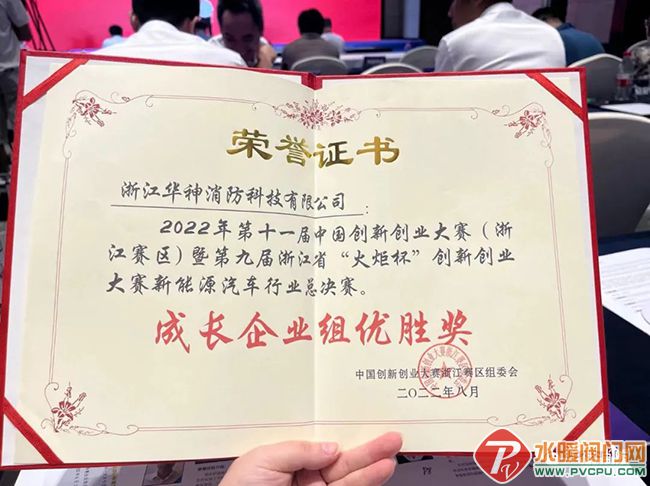 荣誉证书
浙江华神消防科技有限公司：
2022年第十一届中国创新创业大赛（浙
江赛区）暨第九届浙江省“火炬杯”创新创业
大赛新能源汽车行业总决赛。
成长企业组优胜奖
中国创新创业大赛浙江赛区组委会
二〇二二年八月
水暖阀门网
WWW.PVCPU.COM